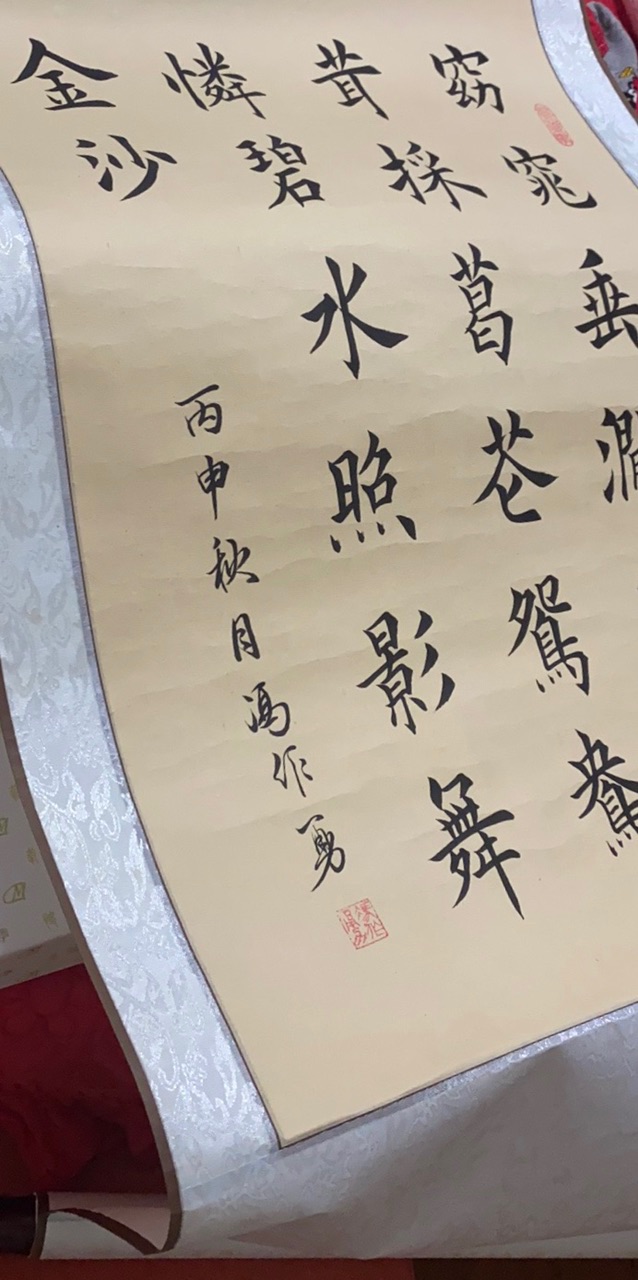 窈窕垂澗
茸採葛花鴛鴦
憐碧水照影舞
金沙
丙申秋月馮作勇